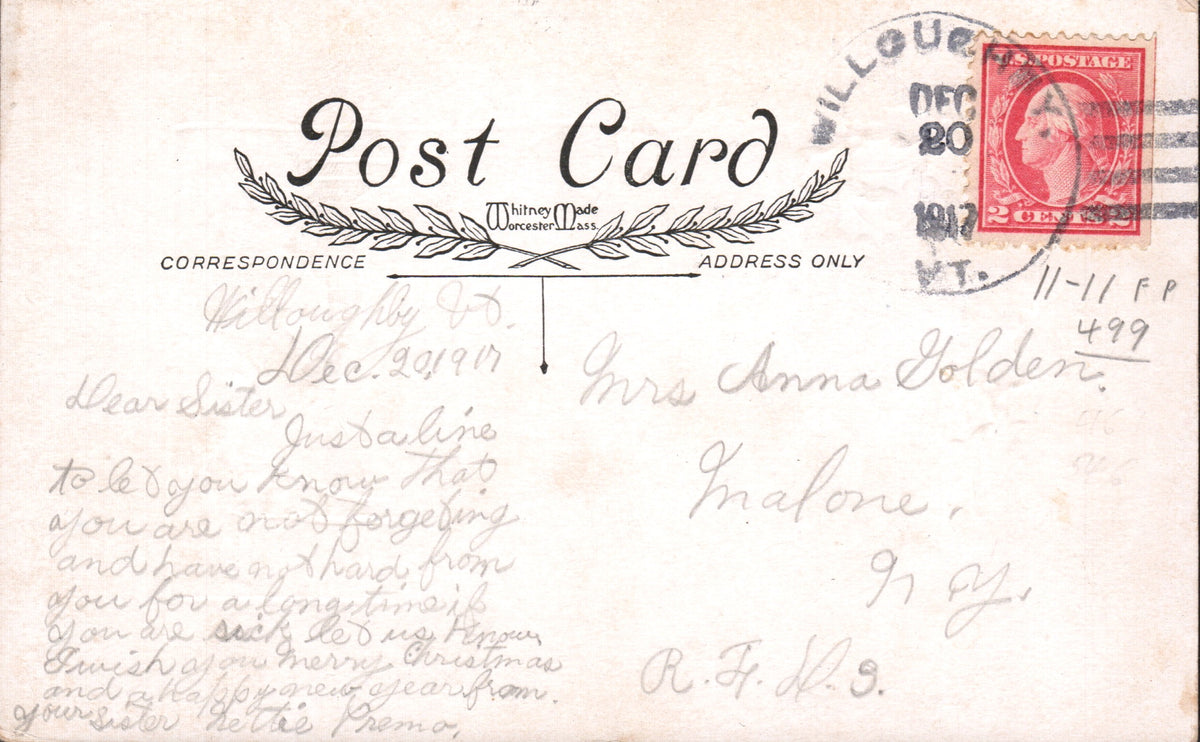 WILLOUGHBY.
DEC
20
1917
VT.
U.S. POSTAGE
2 CENTS 2
Post Card
Whitney Made
Worcester Mass.
CORRESPONDENCE
ADDRESS ONLY
11-11 F P
499
Willoughby Vt.
Dec. 20, 1917
Dear Sister
Just a line
to let you know that
you are not forgeting
and have not hard from
you for a long time if
you are sick let us know
I wish you Merry Christmas
and a happy new year from.
your sister Nettie Premo.
Mrs Anna Golden.
Malone,
N Y.
R. F. D. 3.